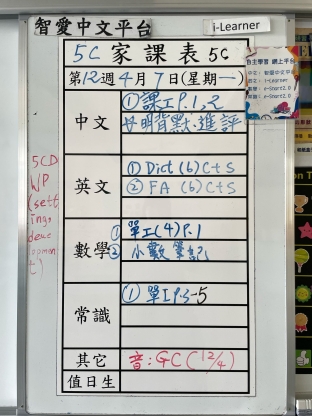 智愛中文平台
i-Learner
5C 家課表 5C
自主學習 網上平台
第12週4月7日(星期一)
中文
①課工P.1,2
毋明背默.進評
英文
① Dict (6) C+S
② FA (6) C+S
5CD
WP
(sett
ings
deve
lopmen
t)
數學
① 單工(4)P.1
② 小數筆記
常識
① 單1P.3-5
其它
音:GC(12/4)
值日生